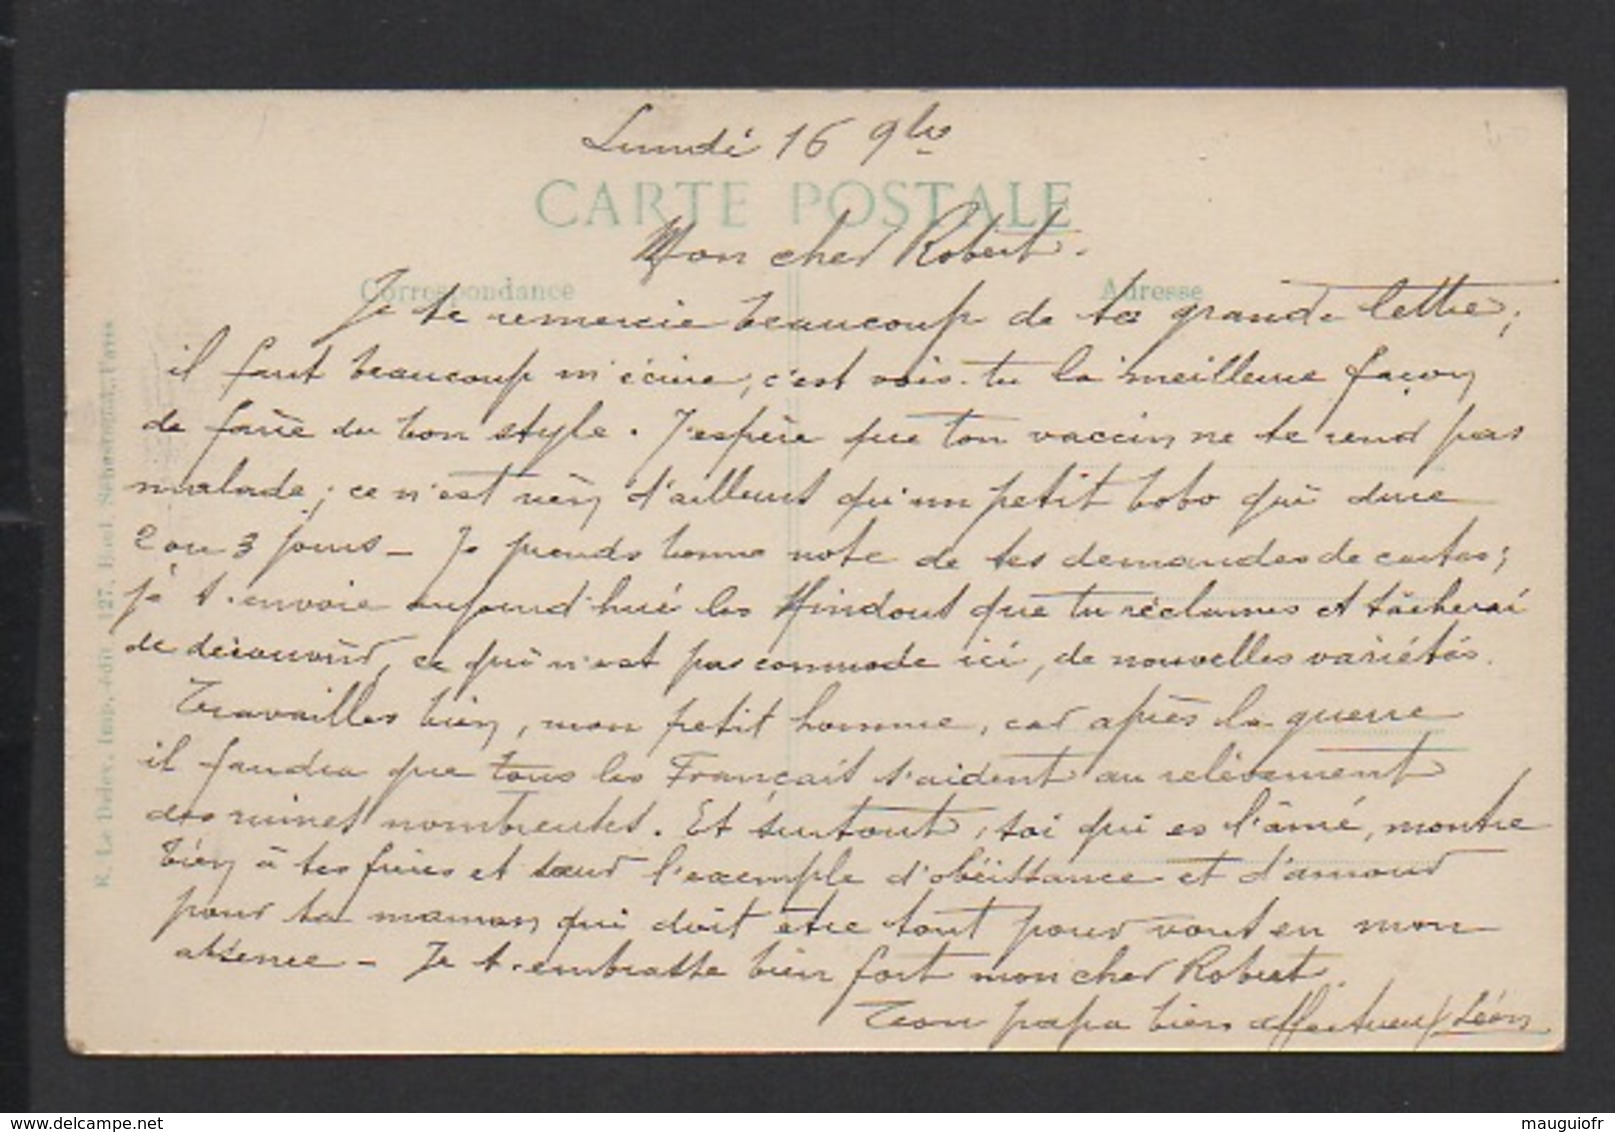 Lundi 16 9bre
CARTE POSTALE
Mon cher Robert.
Correspondance
Adresse
Je te remercie beaucoup de ta grande lettre;
il faut beaucoup m'écrire, c'est vois-tu la meilleure façon
de faire du bon style. J'espère que ton vaccin ne te rend pas
malade; ce n'est rien d'ailleurs qu'un petit bobo qui dure
2 ou 3 jours - Je prends bonne note de tes demandes de cartes;
je t'envoie aujourd'hui les Hindous que tu réclames et tâcherai
de découvrir, ce qui n'est pas commode ici, de nouvelles variétés.
Travailles bien, mon petit homme, car après la guerre
il faudra que tous les Français s'aident au relèvement
des ruines nombreuses. Et surtout, toi qui es l'aîné, montre
bien à tes frères et sœur l'exemple d'obéissance et d'amour
pour ta maman qui doit être tout pour vous en mon
absence - Je t'embrasse bien fort mon cher Robert.
Ton papa bien affectueux Léon
R. Le Deley, Imp.-édit., 127, Boul. Sébastopol, Paris
delcampe.net
mauguiofr